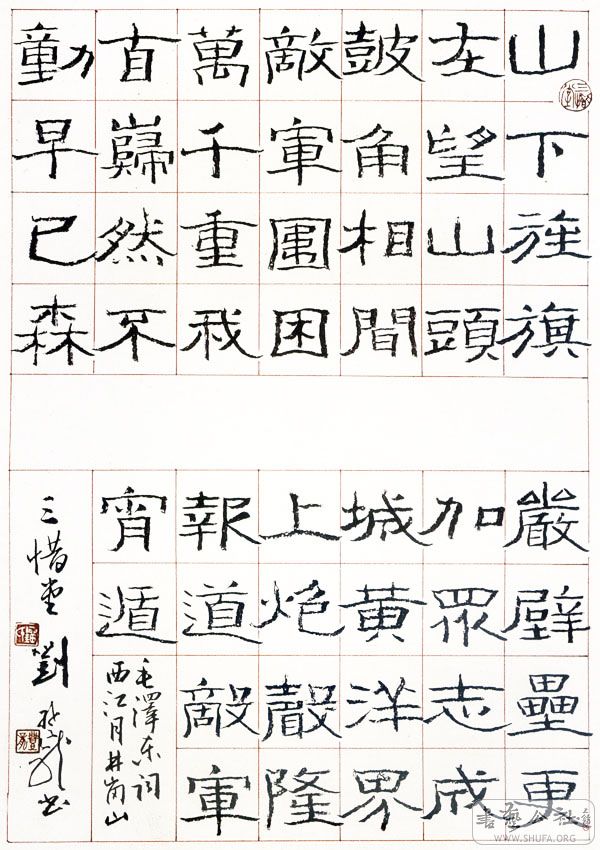 山下旌旗
在望山頭
鼓角相間
敵軍圍困
萬千重我
自巋然不
動早已森
嚴壁壘更
加眾志成
城黃洋界
上炮聲隆
報道敵軍
宵遁
毛澤东词
西江月井岗山
三惜堂劉
书
書藝公社
WWW.SHUFA.ORG